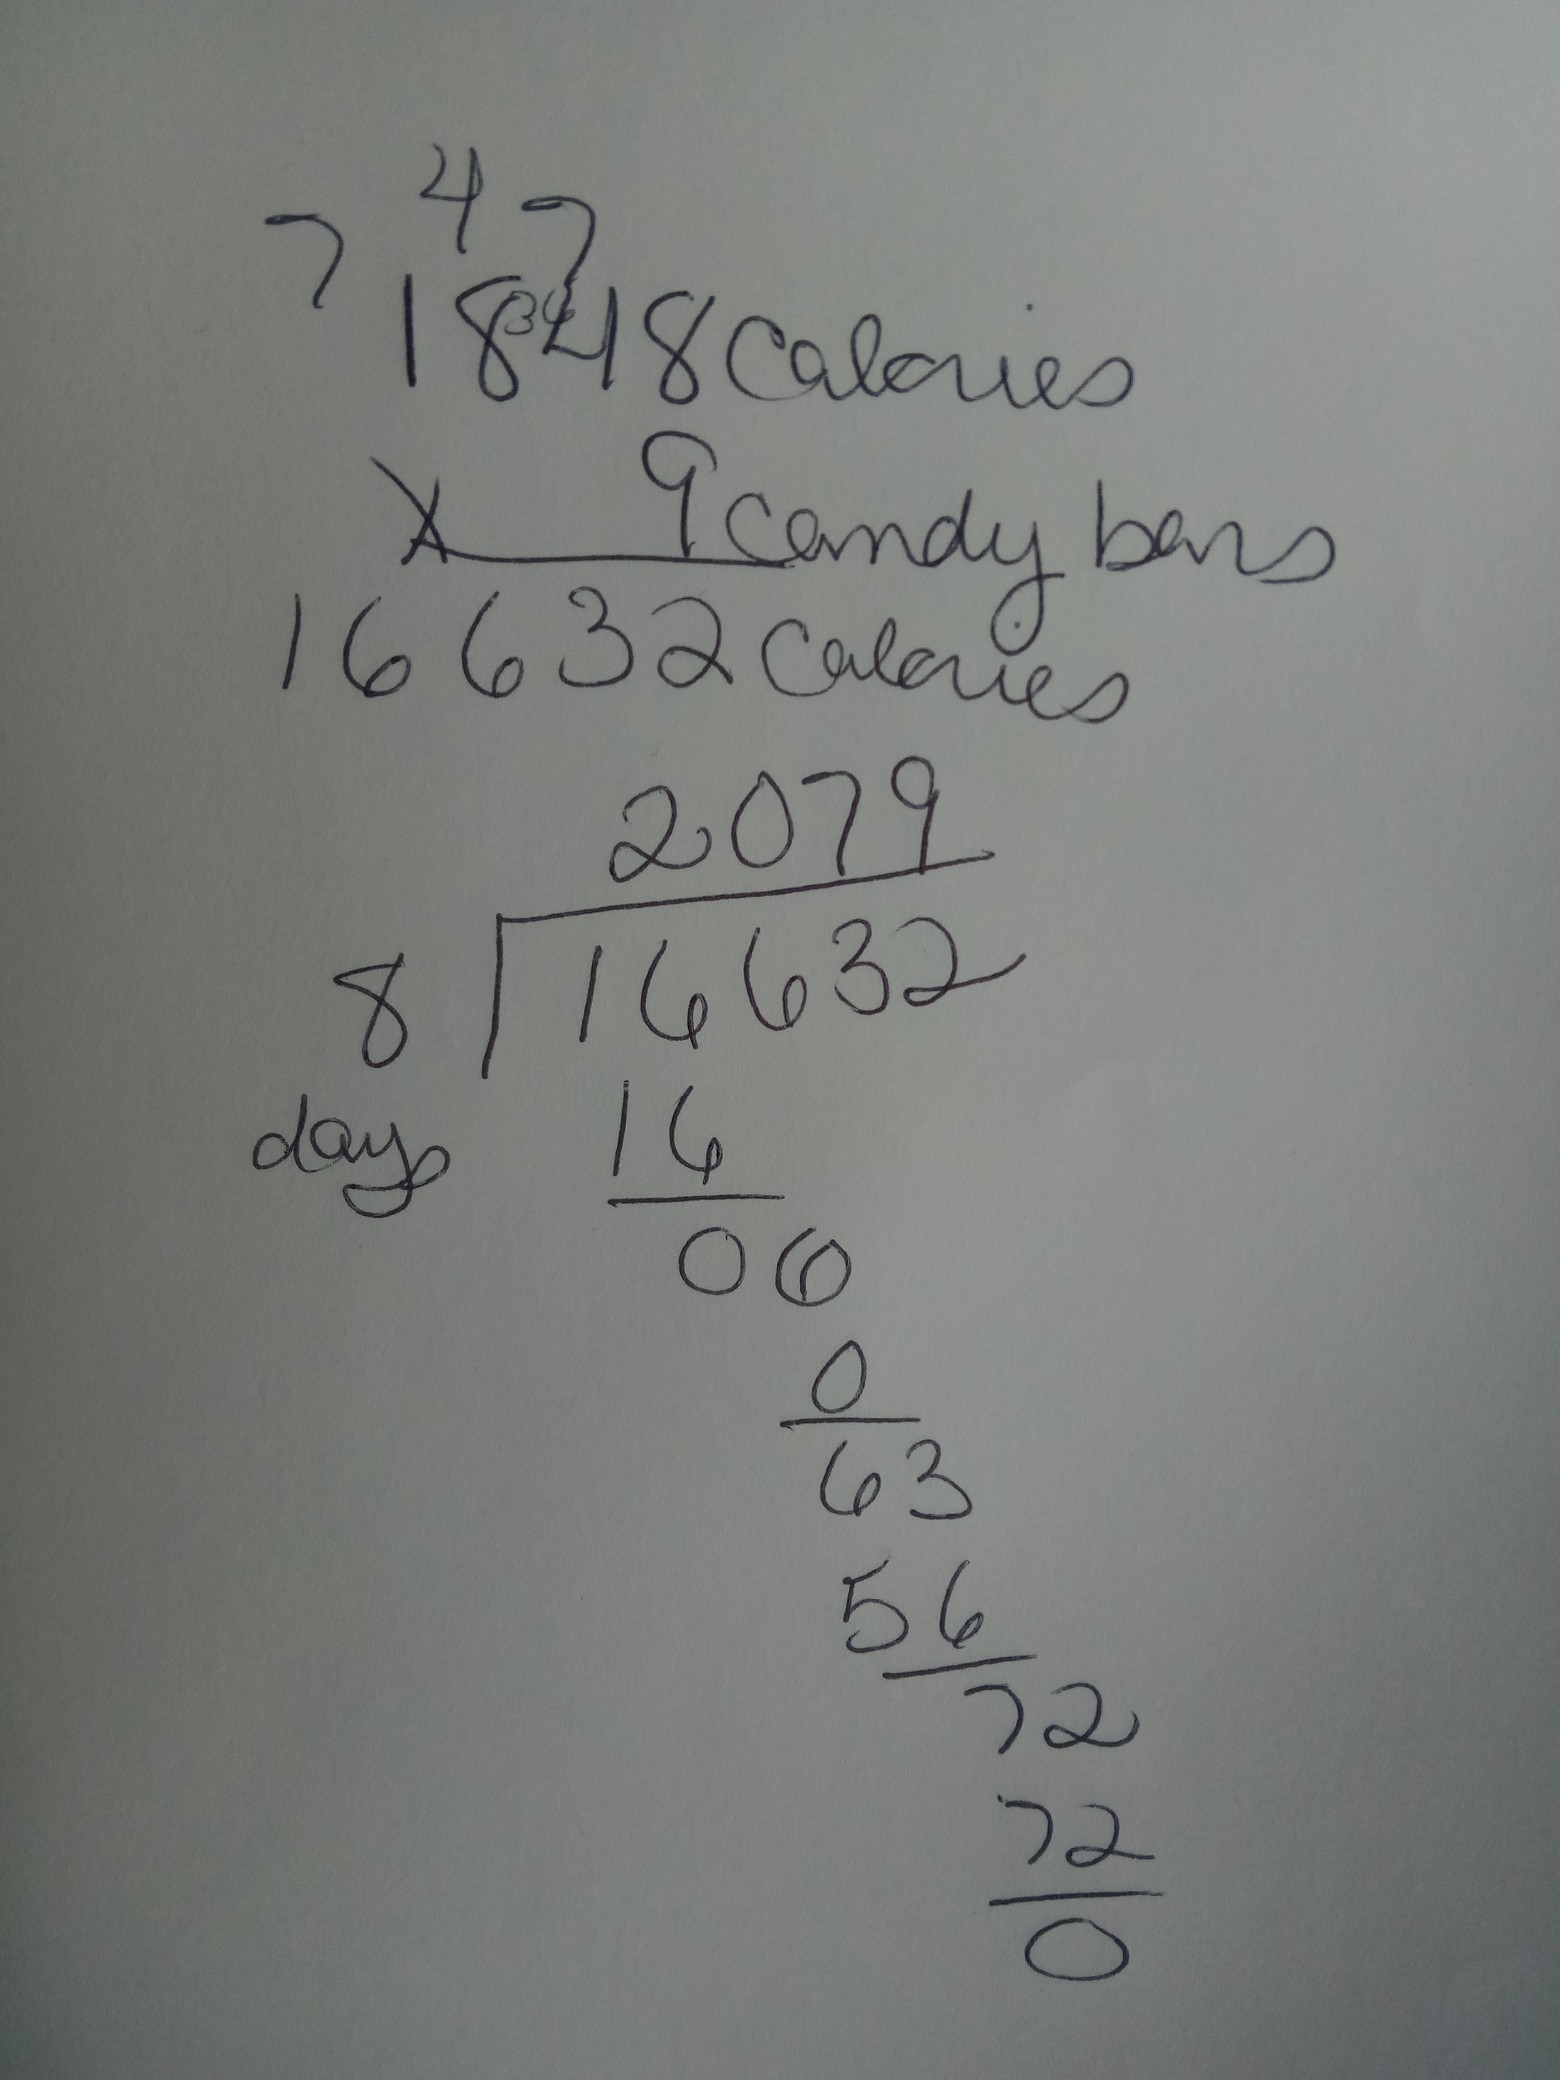 7 4 7
1848 Calories
X 9 candy bars
16632 Calories
2079
8 16632
days 16
06
0
63
56
72
72
0